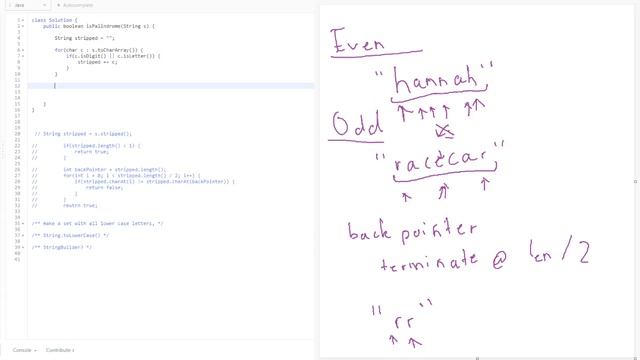 Java
Autocomplete
class Solution {
public boolean isPalindrome(String s) {
String stripped = "";
for(char c : s.toCharArray()) {
if(c.isDigit() || c.isLetter()) {
stripped += c;
}
}
}
}
// String stripped = s.stripped();
// if(stripped.length() < 1) {
// return true;
// }
// int backPointer = stripped.length();
// for(int i = 0; i < stripped.length() / 2; i++) {
// if(stripped.charAt(i) != stripped.charAt(backPointer)) {
// return false;
// }
// }
// return true;
/** make a set with all lower case letters, */
/** String.toLowerCase() */
/** StringBuilder? */
Console
Contribute
Even
"hannah"
Odd
"racecar"
back pointer
terminate @ len / 2
"rr"